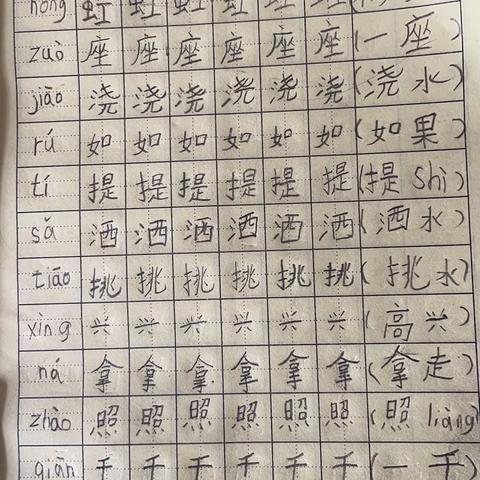 hóng 虹 虹 虹 虹 虹 虹
zuò 座 座 座 座 座 座 (一座)
jiāo 浇 浇 浇 浇 浇 浇 (浇水)
rú 如 如 如 如 如 如 (如果)
tí 提 提 提 提 提 提 (提 Shì)
sǎ 洒 洒 洒 洒 洒 洒 (洒水)
tiāo 挑 挑 挑 挑 挑 挑 (挑水)
xìng 兴 兴 兴 兴 兴 兴 (高兴)
ná 拿 拿 拿 拿 拿 拿 (拿走)
zhào 照 照 照 照 照 照 (照 liàng)
qiān 千 千 千 千 千 千 (一千)